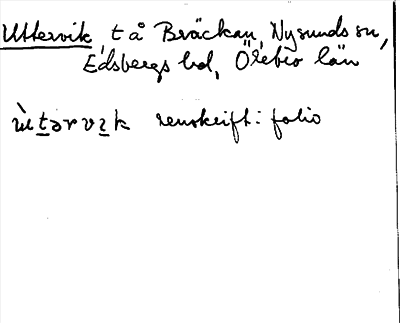 Uttervik, t å Bräckan, Nysunds sn,
Edsbergs hd, Örebro län
ẁtərvɪk renskrift: folio